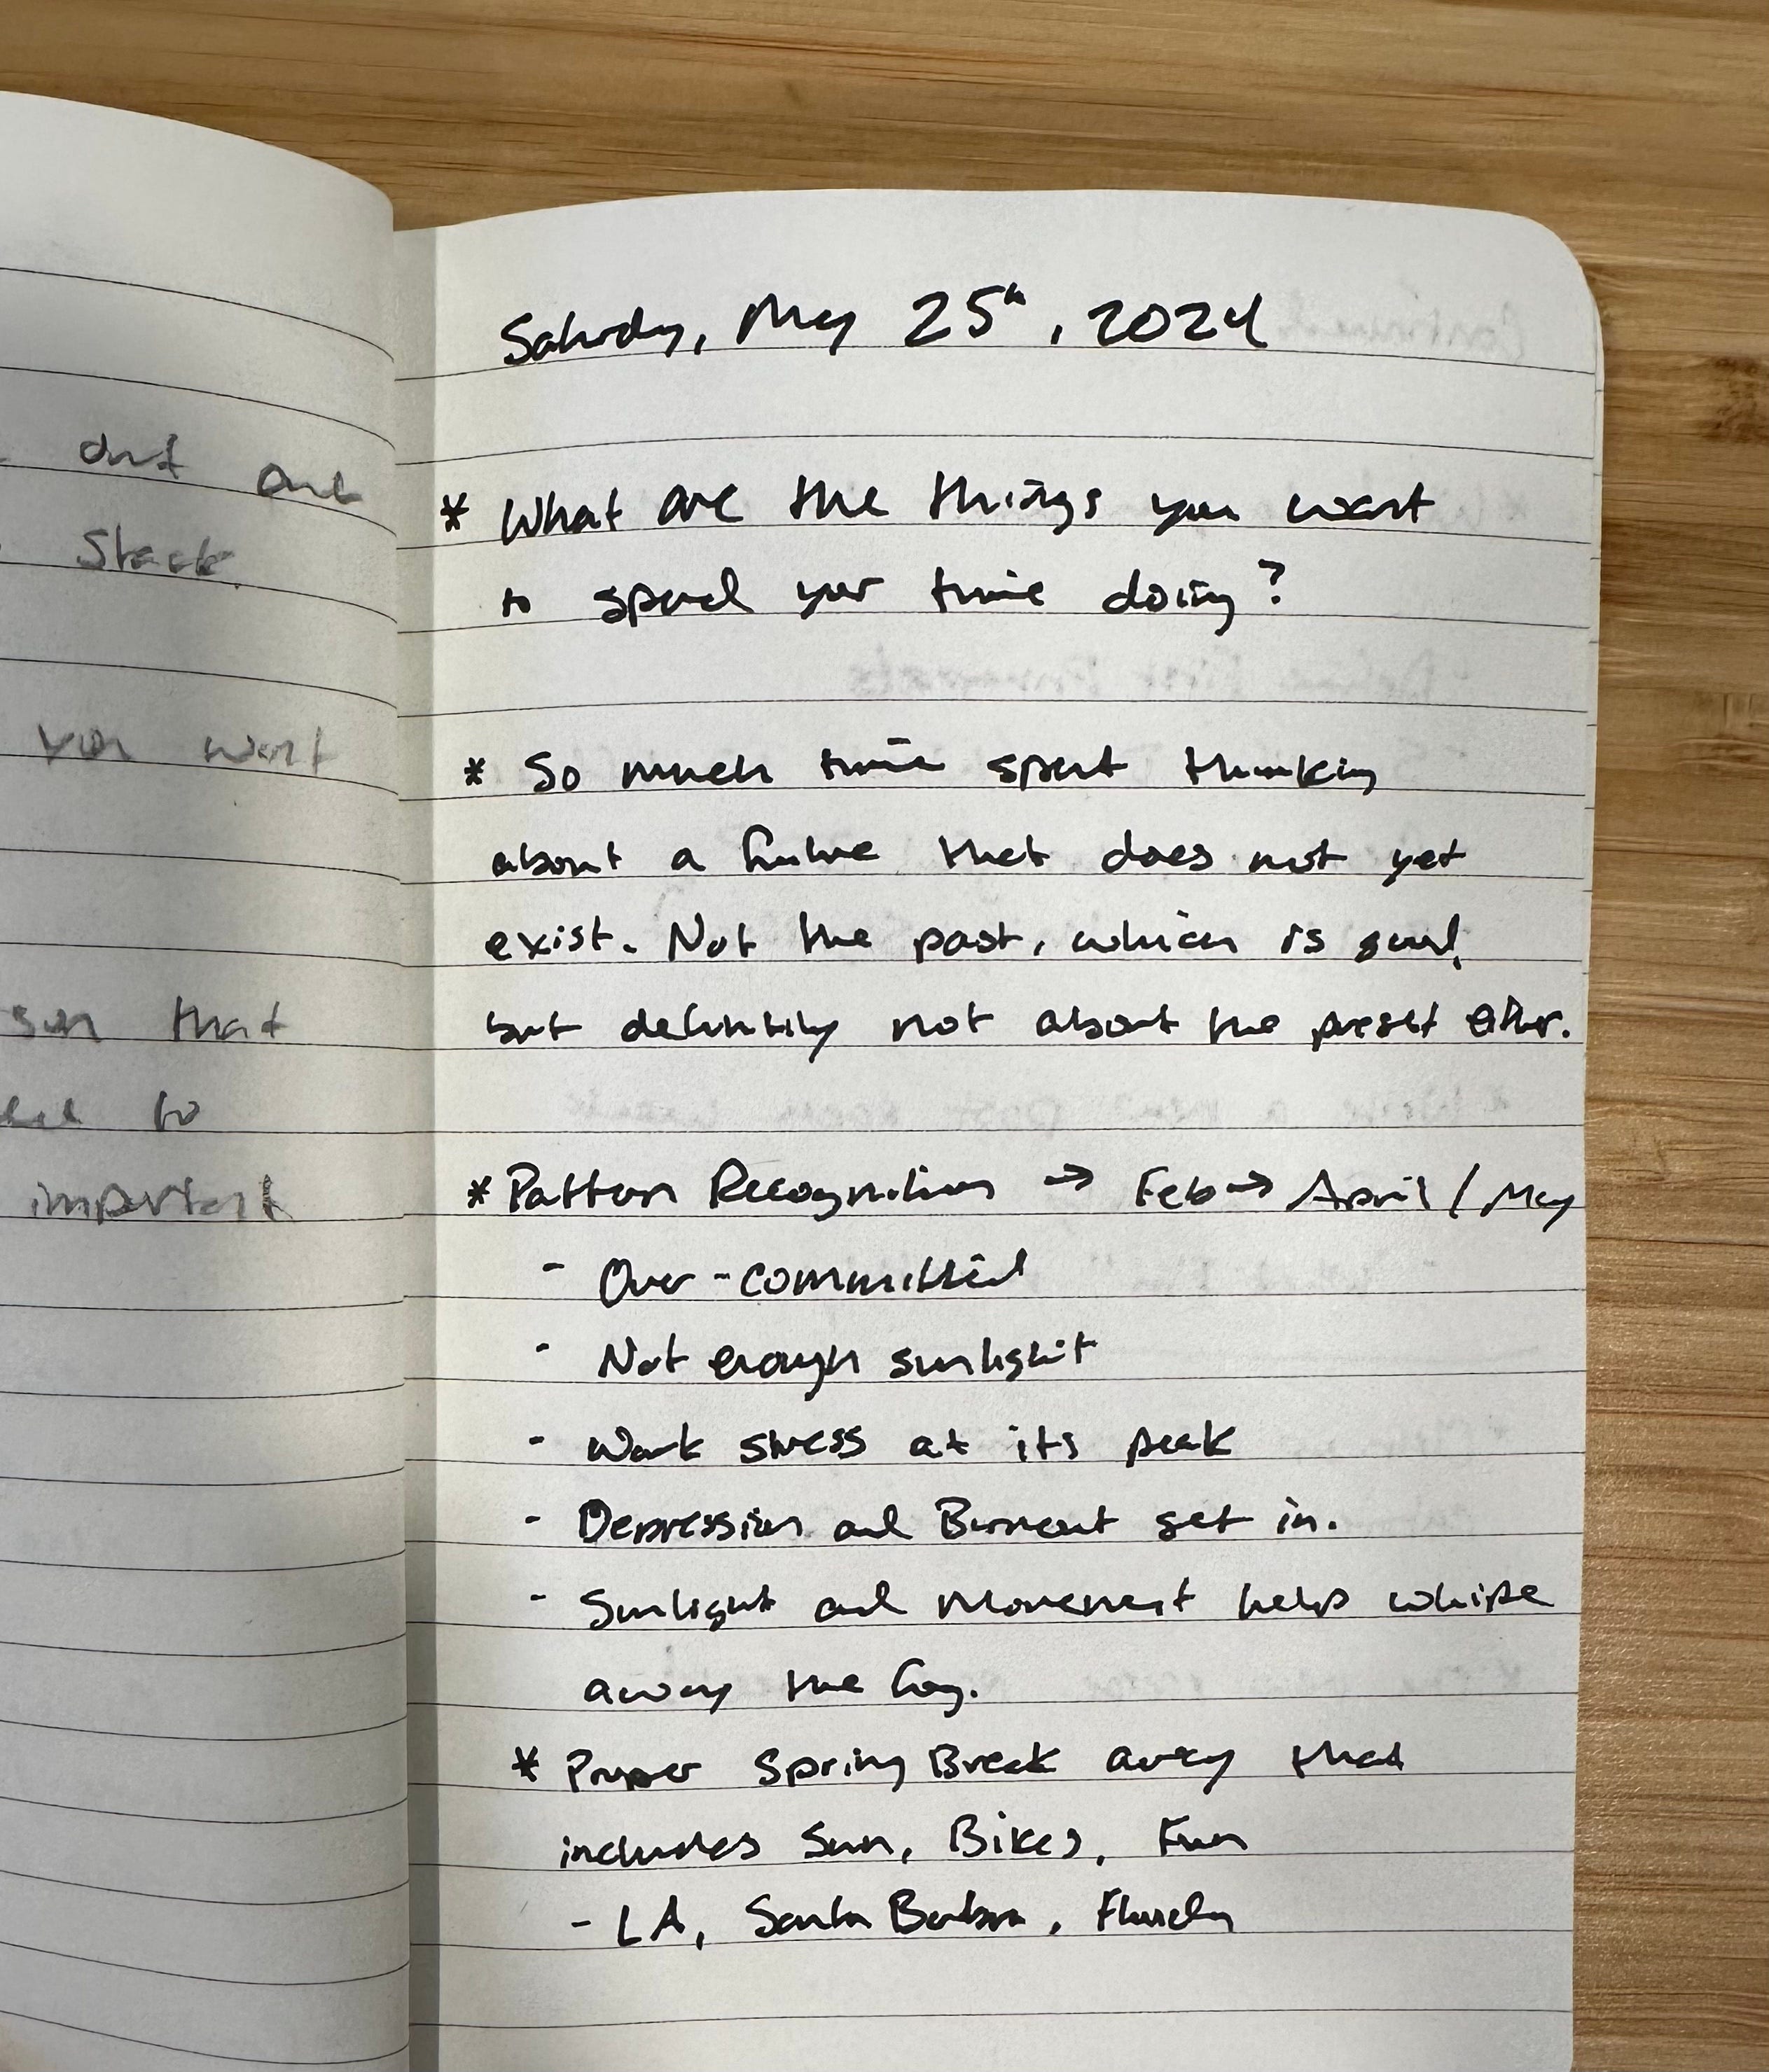 out
Stack.
you want
that
to
important
Saturday, May 25th, 2024
* What are the things you want
to spend your time doing?
* So much time spent thinking
about a future that does not yet
exist. Not the past, which is good,
but definitily not about the preset either.
* Pattern Recognition → Feb → April / May
- Over-committed
- Not enough sunlight
- Work stress at its peak
- Depression and Burnout set in.
- Sunlight and Movement helps whipe
away the fog.
* Proper Spring Break away that
includes Sun, Bikes, Fun
- LA, Santa Barbara, Florida